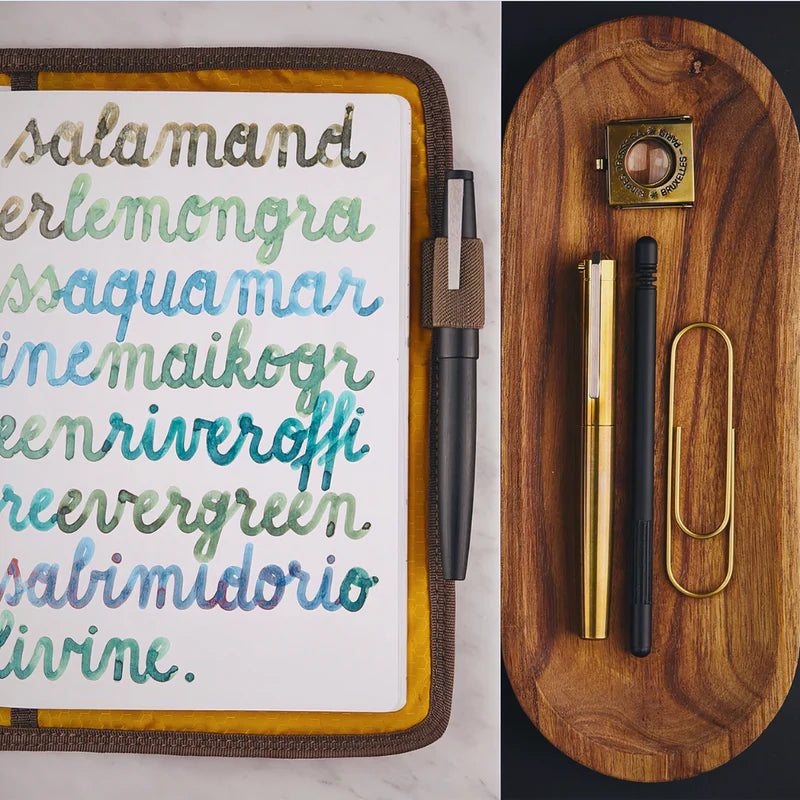 salamand
erlemongra
ssaquamar
inemaikogr
eenriveroffi
reevergreen
sabimidorio
livine.
BRUXELLES - PARIS